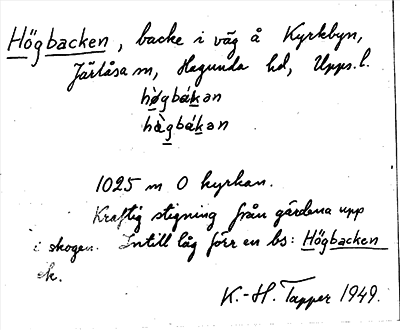 Högbacken, backe i väg å Kyrkbyn,
Järlåsa sn, Hagunda hd, Upps. l.
hø̀gbákan
hàgbákan
1025 m O kyrkan.
Kraftig stigning från gårdena upp
i skogen. Intill låg förr en bs: Högbacken
ek.
K.-H. Tapper 1949.